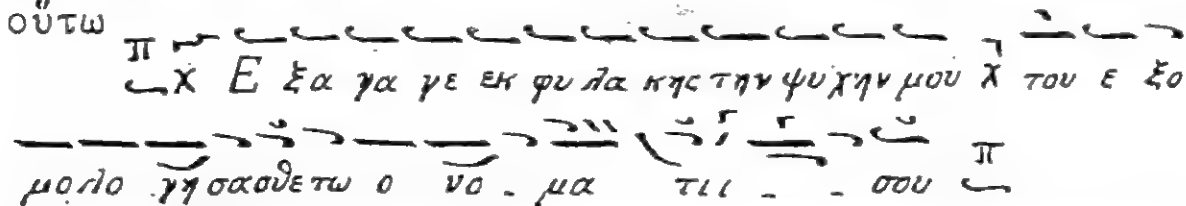 οὕτω
π χ Ε ξα γα γε εκ φυ λα κης την ψυχην μου χ του ε ξο
μο λο γη σασθε τω ο νο - μα τι - - σου π